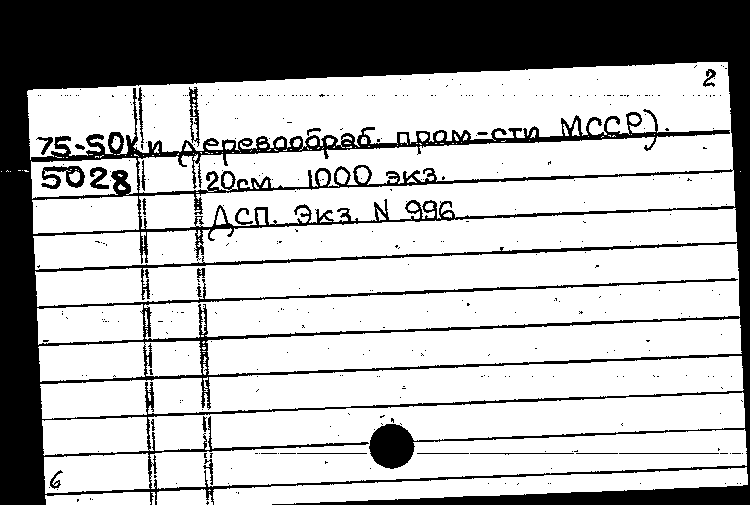 2
75-50К и деревообраб. пром-сти МССР).
5028 20см. 1000 экз.
ДСП. Экз. N 996
6